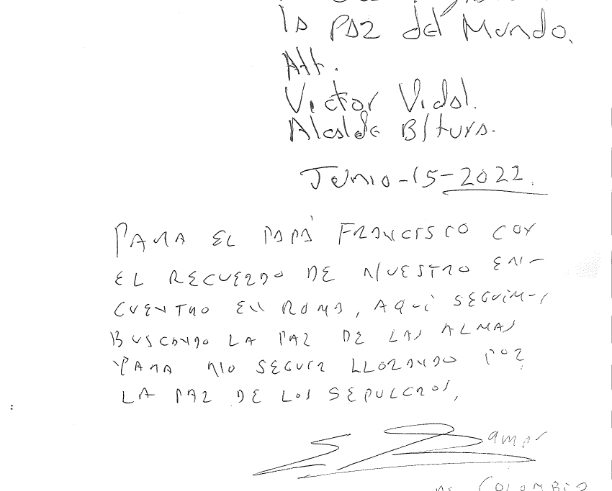 la Paz del Mundo.
Att.
Victor Vidal.
Alcalde B/tura.
Junio-15-2022.
PARA EL PAPÁ FRANCISCO CON
EL RECUERDO DE NUESTRO EN-
CUENTRO EN ROMA, AQUÍ SEGUIMOS
BUSCANDO LA PAZ DE LAS ALMAS
PARA NO SEGUIR LLORANDO POR
LA PAZ DE LOS SEPULCROS,
E Samper
COLOMBIA